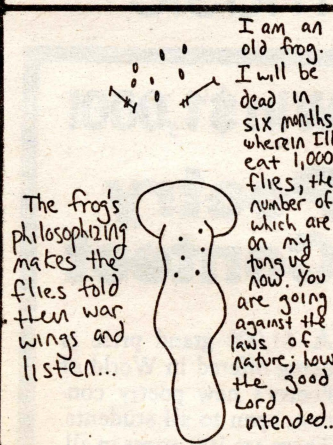 I am an
old frog.
I will be
dead in
six months
wherein Ill
eat 1,000
flies, the
number of
which are
on my
tongue
now. You
are going
against the
laws of
nature; how
the good
Lord
intended.
The frog's
philosophizing
makes the
flies fold
their war
wings and
listen...